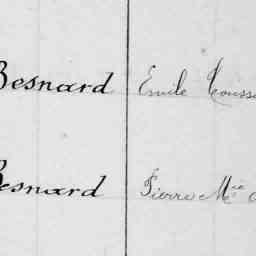 Besnard Emile Touss
Besnard Pierre Mie